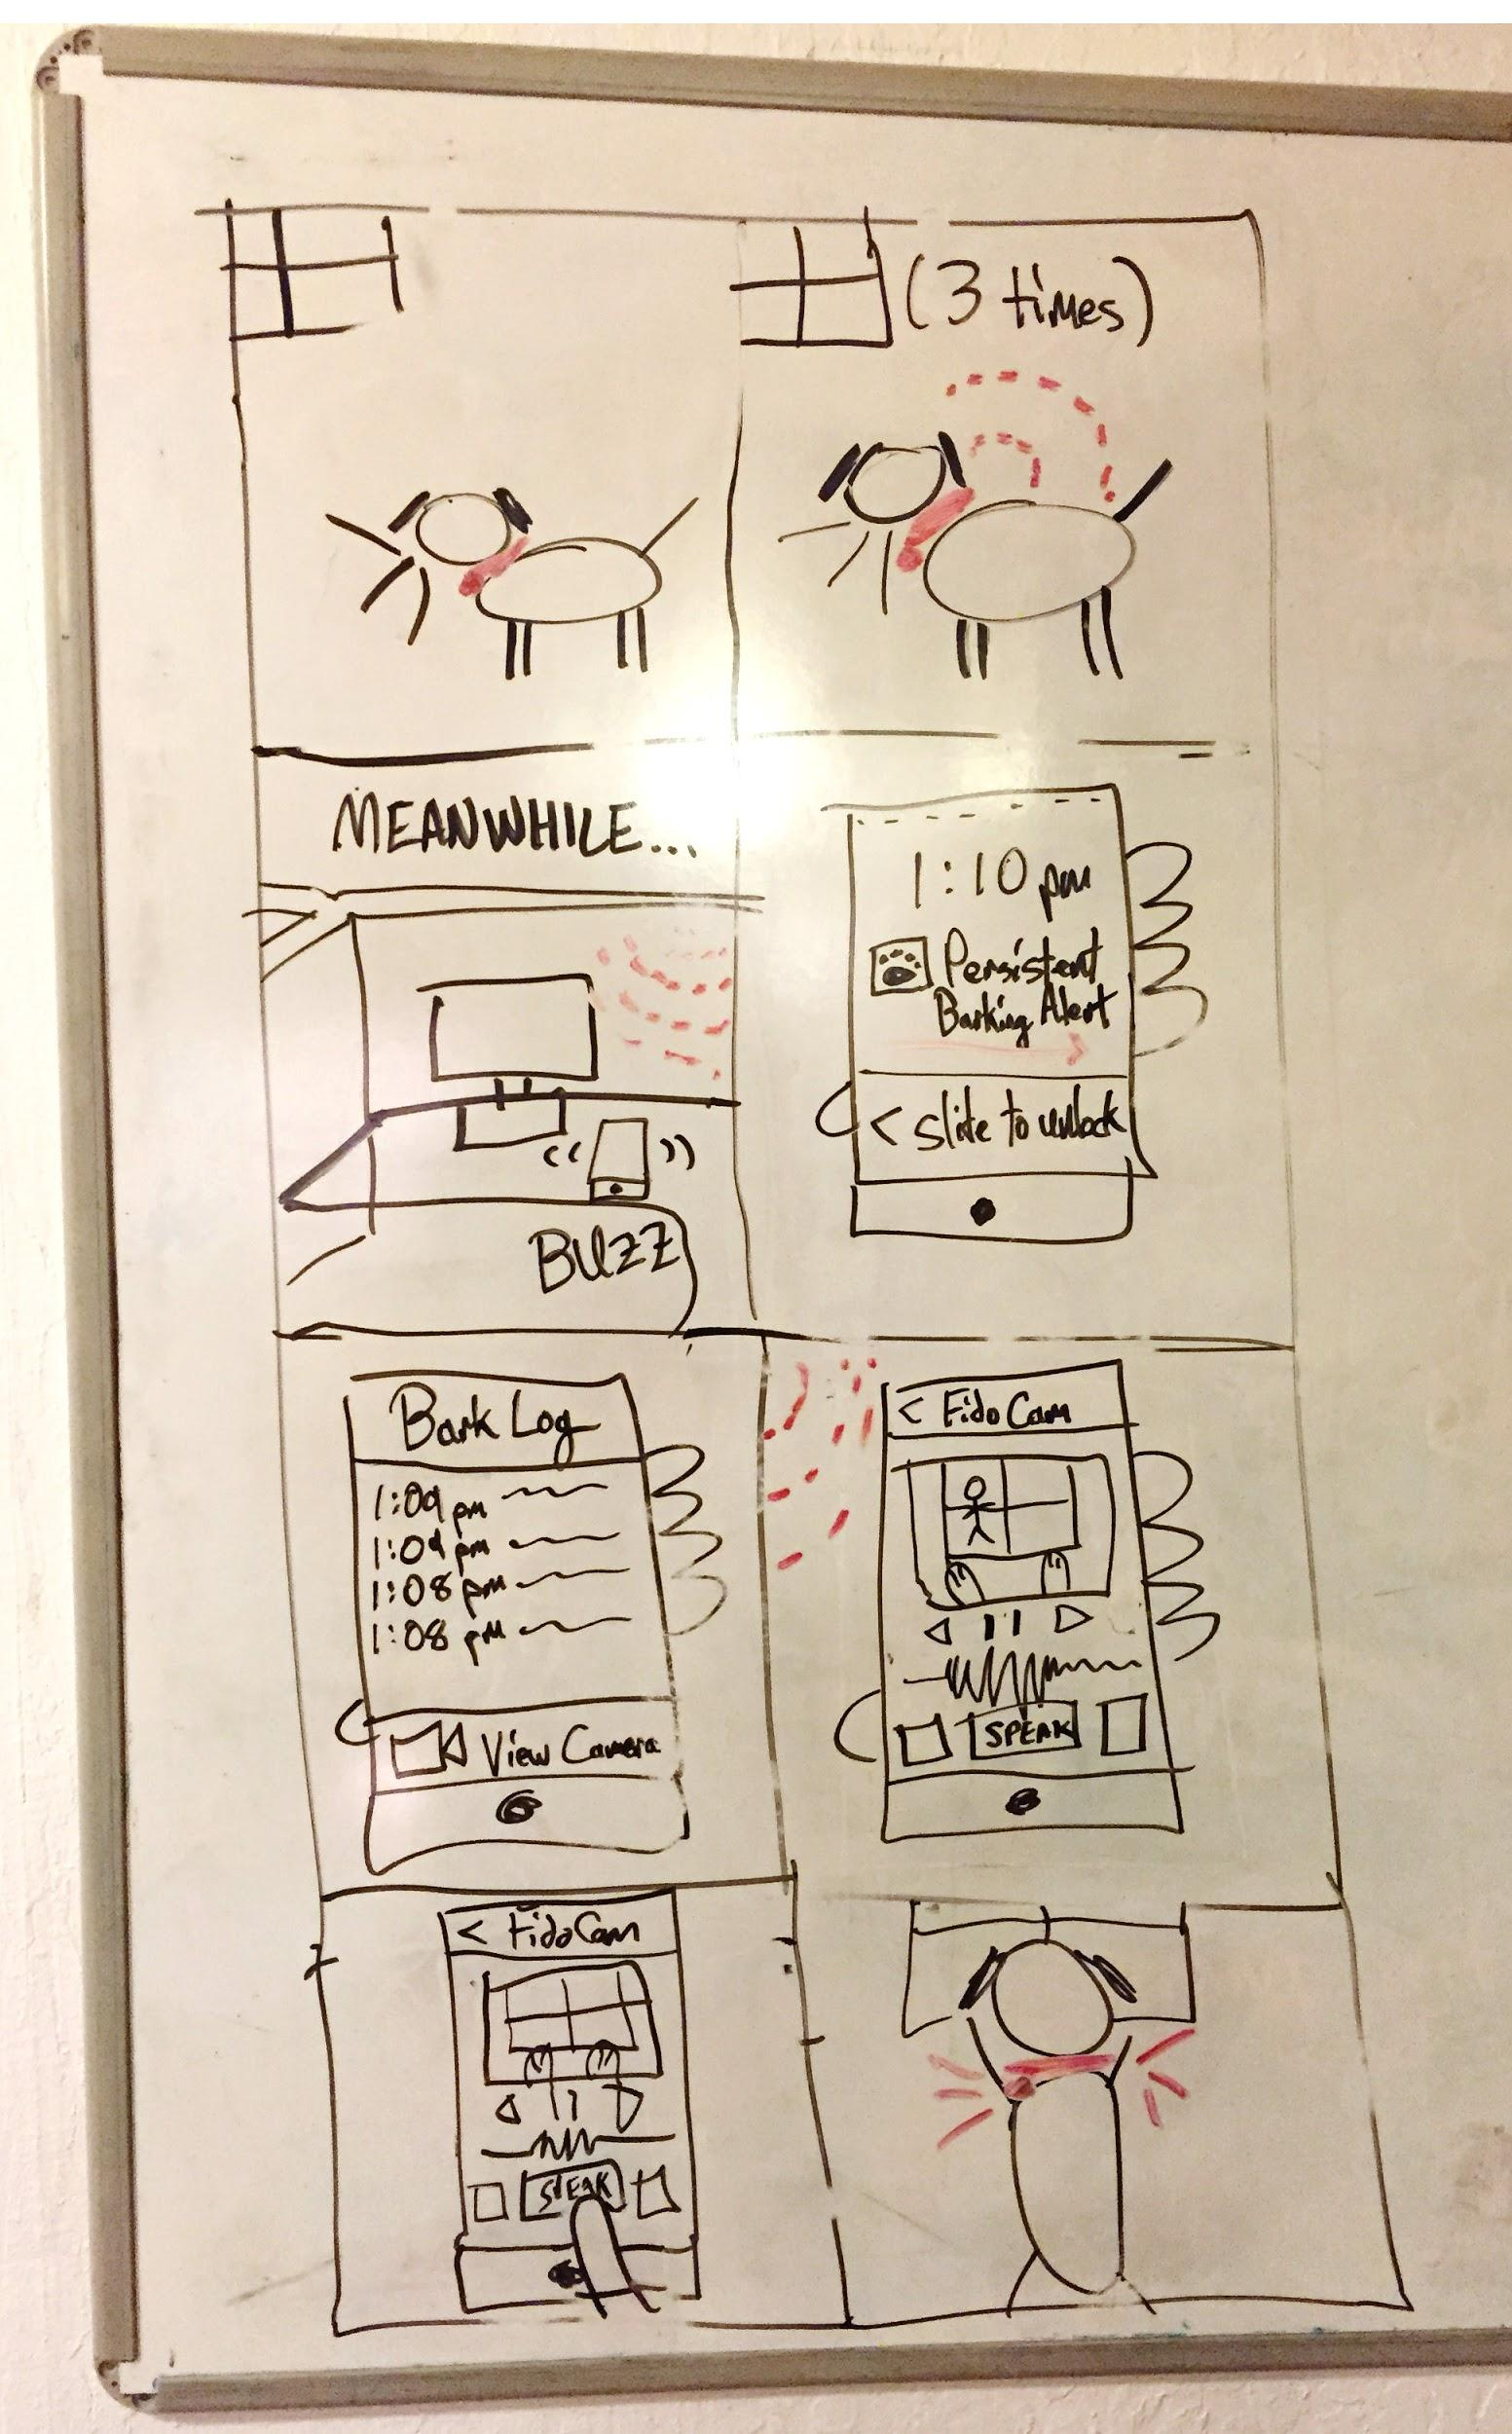 (3 times)
MEANWHILE...
BUZZ
1:10 pm
Persistent
Barking Alert
< slide to unlock
Bark Log
1:09 pm
1:09 pm
1:08 pm
1:08 pm
View Camera
< Fido Cam
SPEAK
< Fido Cam
SPEAK